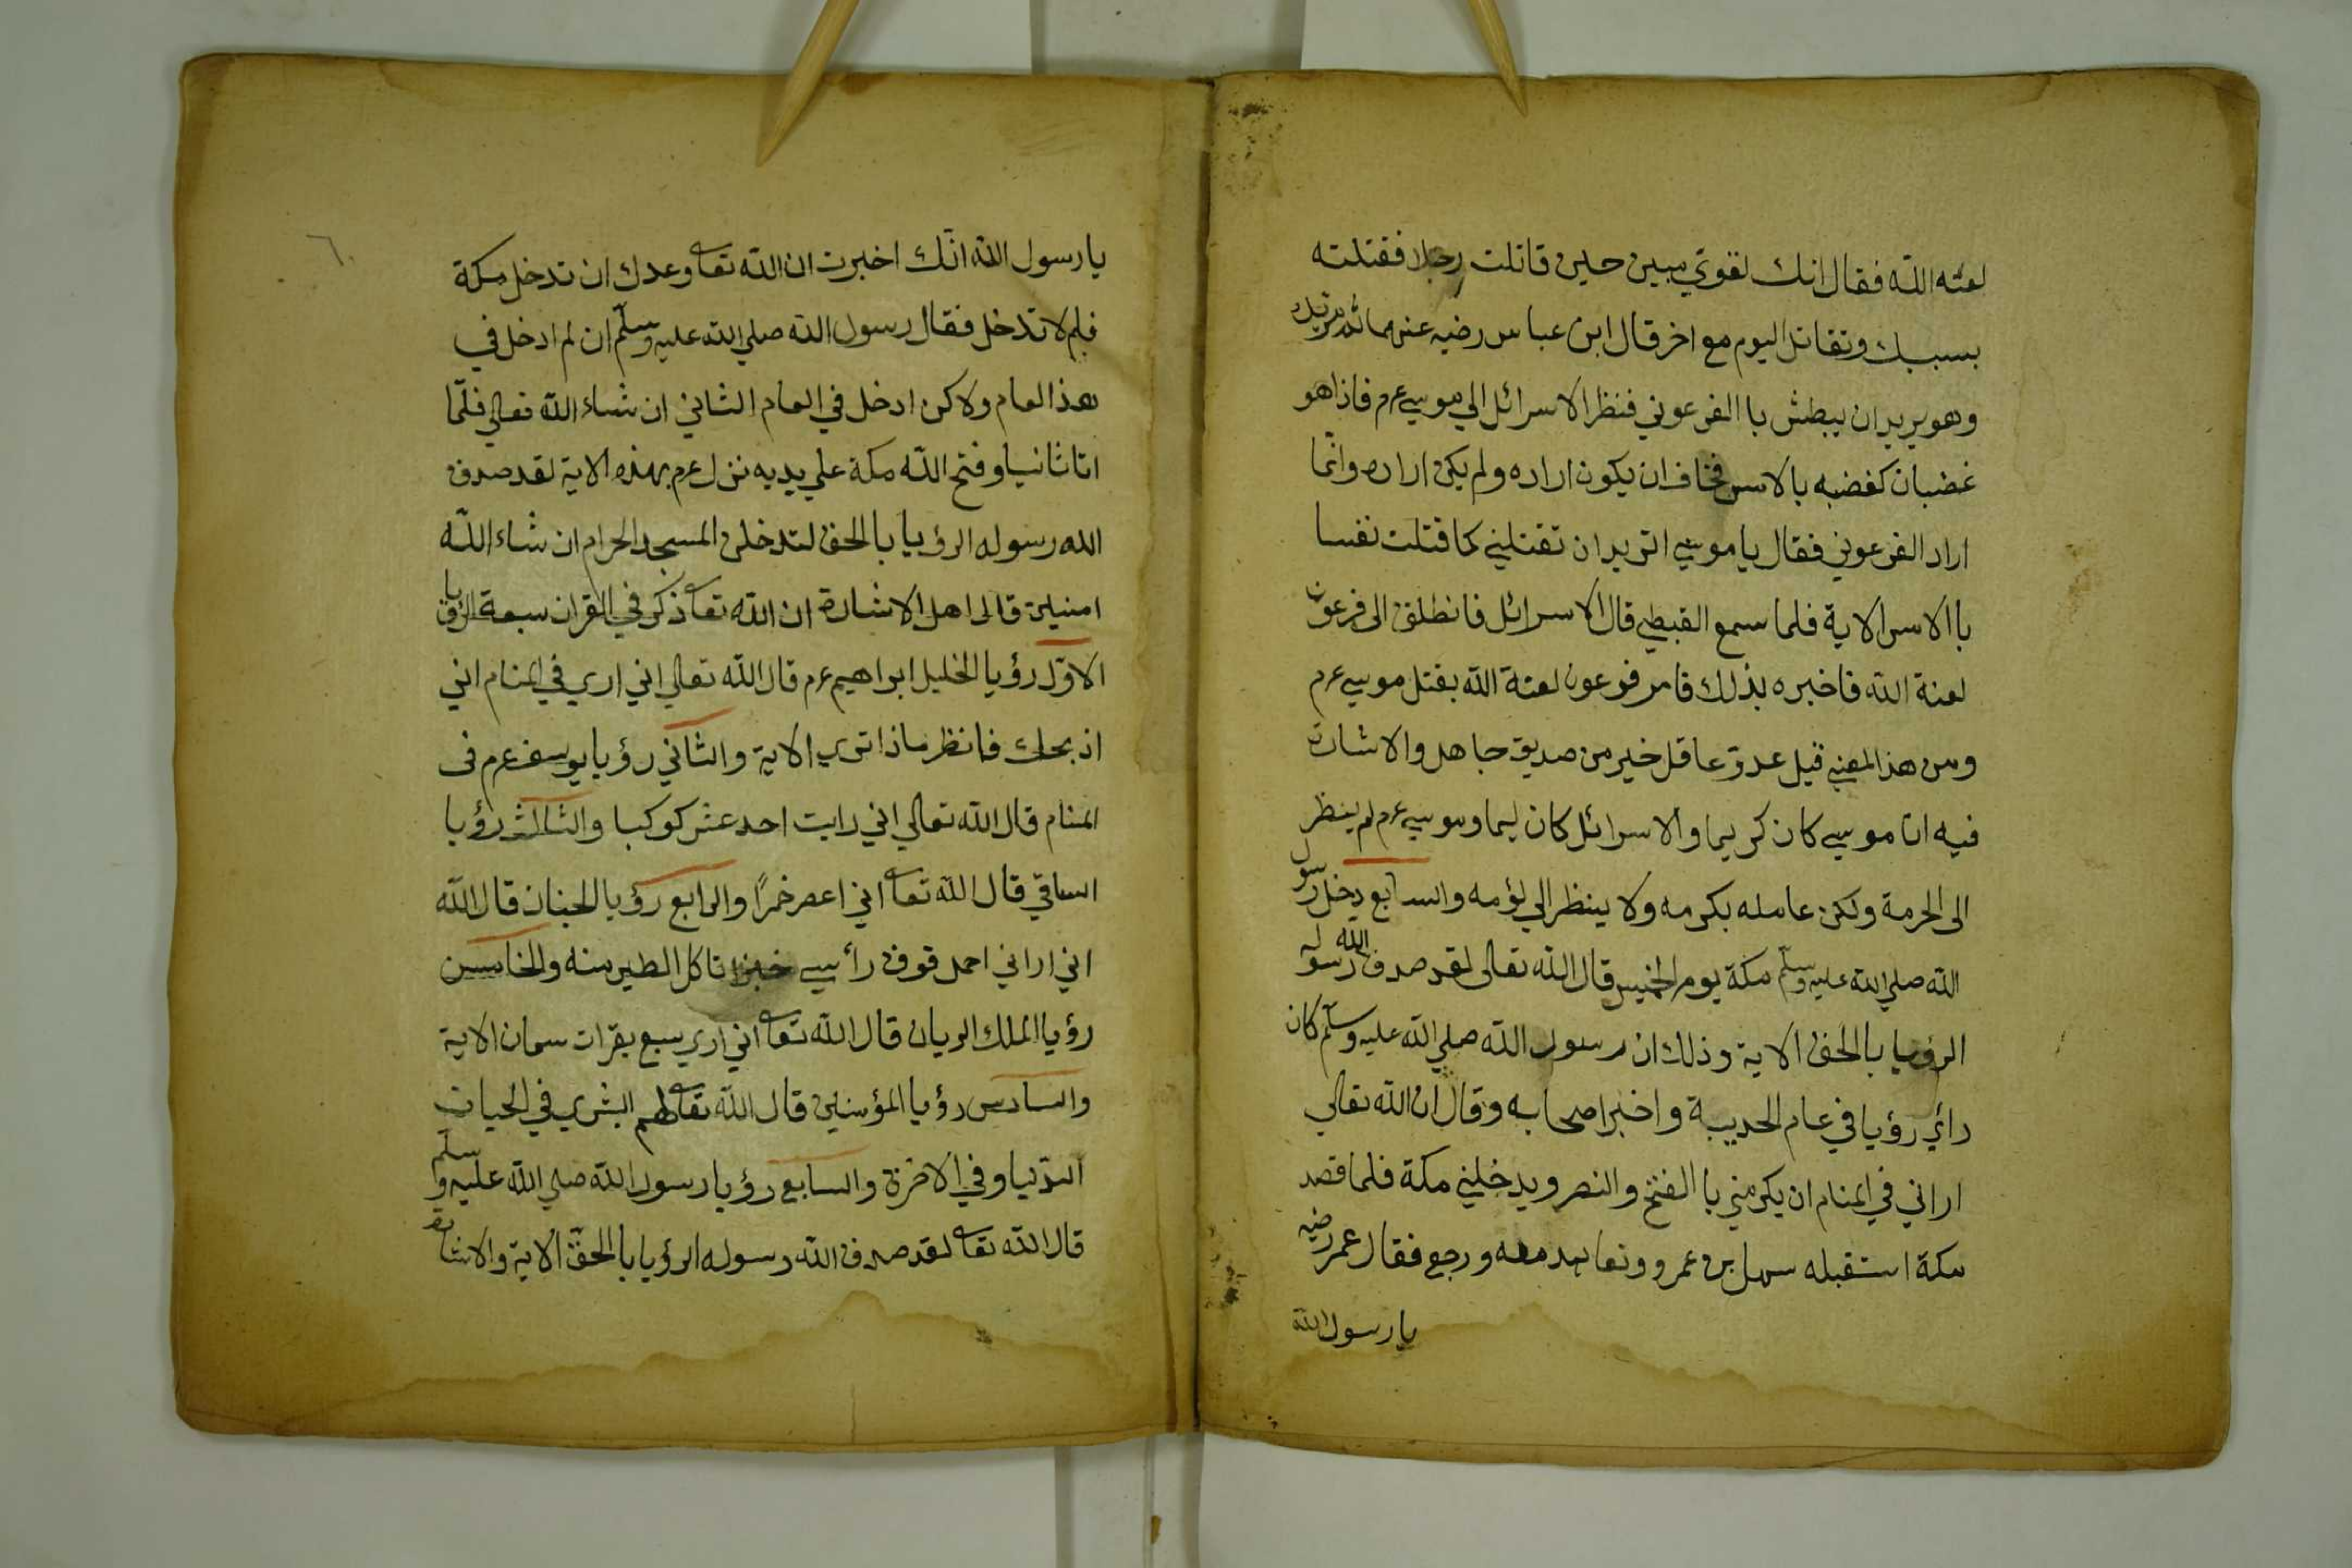 لعنه الله فقال انك لقوي مبين حين قاتلت رجلا فقتلته
بسببك وتقاتل اليوم مع اخر قال ابن عباس رضيه عنهما
وهو يريد ان يبطش با الفرعوني فنظر الاسرائل الي موسي عم فاذا هو
غضبان كغضبه بالامس فخاف ان يكون اراده ولم يكن اراده وانّما
اراد الفرعوني فقال يا موسي اتريد ان تقتلني كما قتلت نفسا
با الامس الاية فلما سمع القبطي قال الاسرائل فانطلق الى فرعون
لعنة الله فاخبره بذلك فامر فرعون لعنة الله بقتل موسي عم
ومن هذ المعني قيل عدوّ عاقل خير من صديق جاهل والاشارة
فيه ان موسي كان كريما والاسرائل كان ليما وموسي عم لم ينظر
الى الحرمة ولكن عامله بكرمه ولا ينظر الي لؤمه والسابع دخل رسول
الله صلي الله عليه وسلّم مكة يوم الخميس قال الله تعالى لقد صدق الله رسوله
الرؤيا بالحق الاية وذلك ان رسول الله صلي الله عليه وسلّم كان
رائ رؤيا في عام الحديبة واخبر اصحابه وقال ان الله تعالي
اراني في المنام ان يكرمني با الفتح والنصر ويدخلني مكة فلما قصد
مكة استقبله سهل بن عمرو وتعاهد معه ورجع فقال عمر رضيه
يا رسول الله
٦
يا رسول الله انّك اخبرت ان الله تعا وعدك ان تدخل مكة
فلم لا تدخل فقال رسول الله صلي الله عليه وسلّم ان لم ادخل في
هذ العام ولاكن ادخل في العام الثاني ان شاء الله تعالي فلمّا
اتا ثانيا وفتح الله مكة علي يديه نزل عم بهذه الاية لقد صدق
الله رسوله الرؤيا بالحق لتدخلن المسجد الحرام ان شاء الله
امنين قال اهل الاشارة ان الله تعا ذكر في القران سبعة الرؤيا
الاوّل رؤيا الخليل ابراهيم عم قال الله تعالي اني اري في المنام اني
اذبحك فانظر ماذا تري الاية والثاني رؤيا يوسف عم فى
المنام قال الله تعالي اني رايت احد عشر كوكبا والثالث رؤيا
الساقي قال الله تعا اني اعصر خمرًا والرابع رؤيا الخبّاز قال الله
اني اراني احمل فوق رأسي خبزا تاكل الطير منه والخامس
رؤيا الملك الريان قال الله تعا اني اري سبع بقرات سمان الاية
والسادس رؤيا المؤمنين قال الله تعا لهم البشري في الحيات
الدّنيا وفي الاخرة والسابع رؤيا رسول الله صلي الله عليه وسلّم
قال الله تعا لقد صدق الله رسوله الرؤيا با الحقّ الاية والاشارة